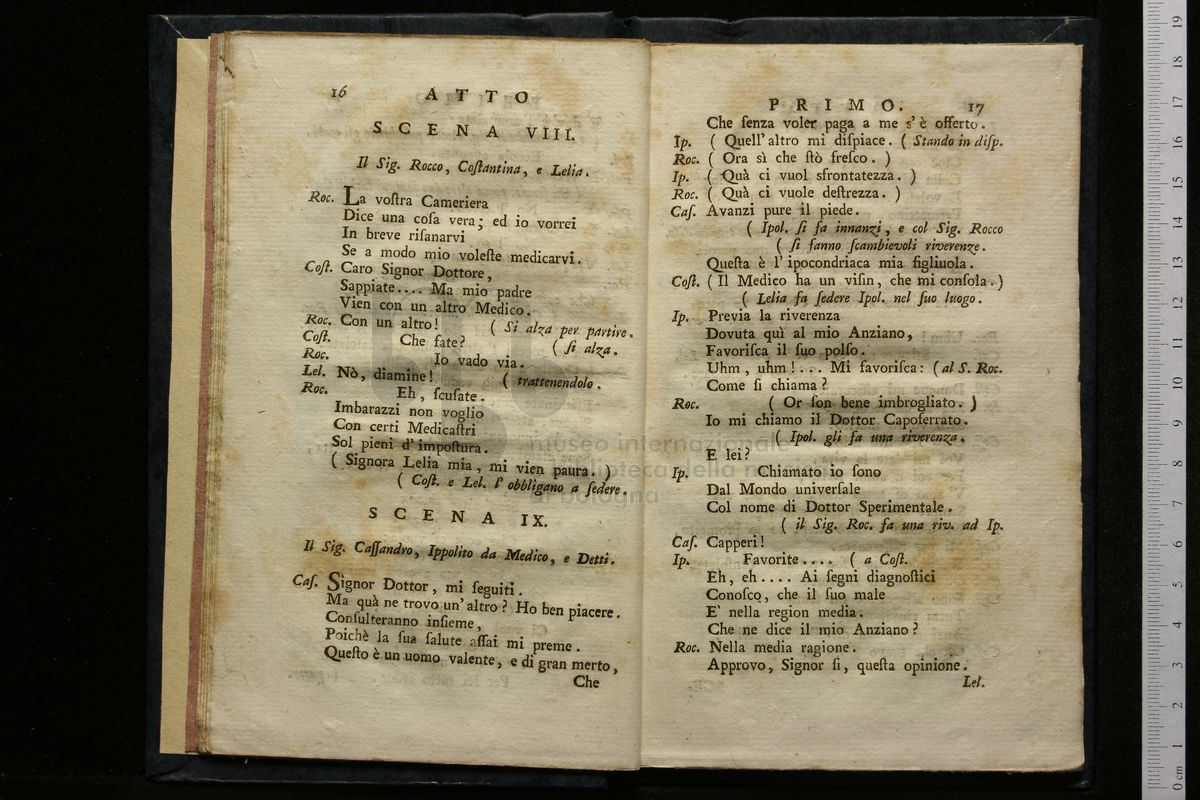 16 ATTO
SCENA VIII.
Il Sig. Rocco, Coſtantina, e Lelia.
Roc. La voſtra Cameriera
Dice una coſa vera; ed io vorrei
In breve riſanarvi
Se a modo mio voleſte medicarvi.
Coſt. Caro Signor Dottore,
Sappiate.... Ma mio padre
Vien con un altro Medico.
Roc. Con un altro! ( Si alza per partire.
Coſt. Che fate? ( ſi alza.
Roc. Io vado via.
Lel. Nò, diamine! ( trattenendolo.
Roc. Eh, ſcuſate.
Imbarazzi non voglio
Con certi Medicaſtri
Sol pieni d' impoſtura.
( Signora Lelia mia, mi vien paura. )
( Coſt. e Lel. l' obbligano a ſedere.
SCENA IX.
Il Sig. Caſſandro, Ippolito da Medico, e Detti.
Caſ. Signor Dottor, mi ſeguiti.
Ma quà ne trovo un' altro? Ho ben piacere.
Conſulteranno inſieme,
Poichè la ſua ſalute aſſai mi preme.
Queſto è un uomo valente, e di gran merto,
Che
PRIMO. 17
Che ſenza voler paga a me s' è offerto.
Ip. ( Quell' altro mi diſpiace. ( Stando in diſp.
Roc. ( Ora sì che ſtò freſco. )
Ip. ( Quà ci vuol sfrontatezza. )
Roc. ( Quà ci vuole deſtrezza. )
Caſ. Avanzi pure il piede.
( Ipol. ſi fa innanzi, e col Sig. Rocco
( ſi fanno ſcambievoli riverenze.
Queſta è l' ipocondriaca mia figliuola.
Coſt. ( Il Medico ha un viſin, che mi conſola. )
( Lelia fa ſedere Ipol. nel ſuo luogo.
Ip. Previa la riverenza
Dovuta quì al mio Anziano,
Favoriſca il ſuo polſo.
Uhm, uhm!... Mi favoriſca: ( al S. Roc.
Come ſi chiama?
Roc. ( Or ſon bene imbrogliato. )
Io mi chiamo il Dottor Capoferrato.
( Ipol. gli fa una riverenza.
E lei?
Ip. Chiamato io ſono
Dal Mondo univerſale
Col nome di Dottor Sperimentale.
( il Sig. Roc. fa una riv. ad Ip.
Caſ. Capperi!
Ip. Favorite.... ( a Coſt.
Eh, eh.... Ai ſegni diagnoſtici
Conoſco, che il ſuo male
E' nella region media.
Che ne dice il mio Anziano?
Roc. Nella media ragione.
Approvo, Signor ſi, queſta opinione.
Lel.
museo internazionale
biblioteca della m
di bologna
0 cm 1 2 3 4 5 6 7 8 9 10 11 12 13 14 15 16 17 18 19